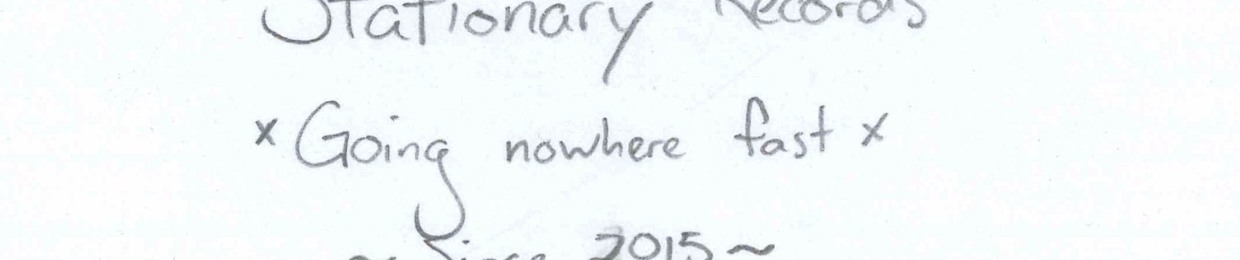 Stationary Records
x Going nowhere fast x
~ Since 2015 ~